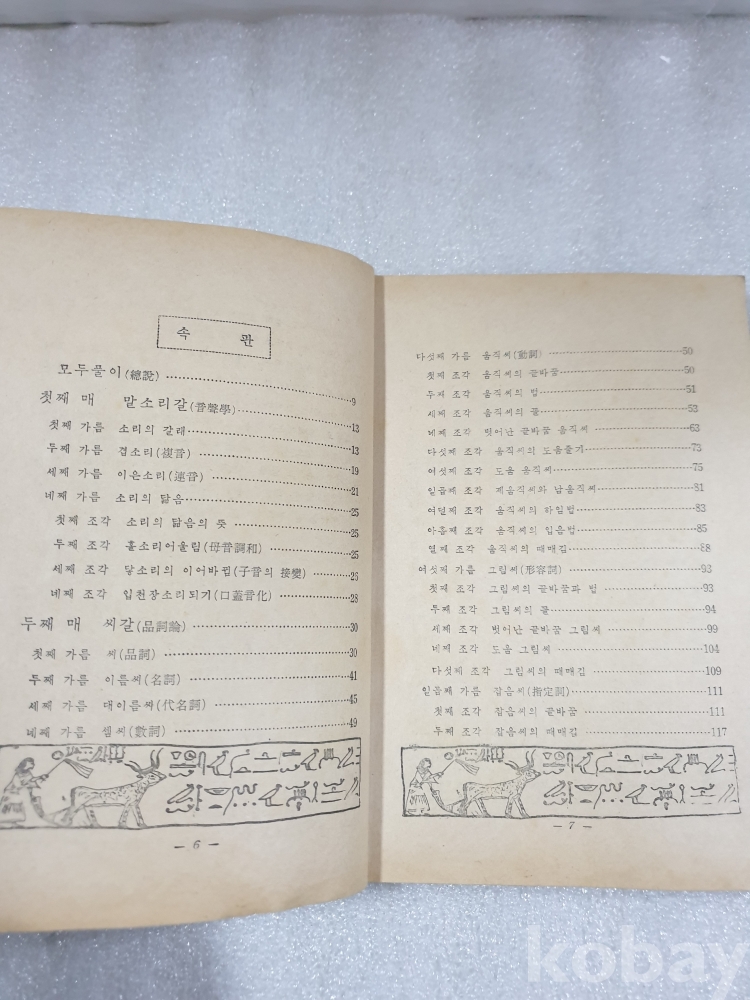 속 판
모두풀이(總說) 9
첫째 매 말소리갈(音聲學) 13
첫째 가름 소리의 갈래 13
두째 가름 겹소리(複音) 19
세째 가름 이은소리(連音) 21
네째 가름 소리의 닮음 25
첫째 조각 소리의 닮음의 뜻 25
두째 조각 홀소리어울림(母音調和) 25
세째 조각 닿소리의 이어바뀜(子音의 接變) 26
네째 조각 입천장소리되기(口蓋音化) 28
두째 매 씨갈(品詞論) 30
첫째 가름 씨(品詞) 30
두째 가름 이름씨(名詞) 41
세째 가름 대이름씨(代名詞) 45
네째 가름 셈씨(數詞) 49
— 6 —
다섯째 가름 움직씨(動詞) 50
첫째 조각 움직씨의 끝바꿈 50
두째 조각 움직씨의 법 51
세째 조각 움직씨의 꼴 53
네째 조각 벗어난 끝바꿈 움직씨 63
다섯째 조각 움직씨의 도움줄기 73
여섯째 조각 도움 움직씨 75
일곱째 조각 제움직씨와 남움직씨 81
여덟째 조각 움직씨의 하임법 83
아홉째 조각 움직씨의 입음법 85
열째 조각 움직씨의 때매김 88
여섯째 가름 그림씨(形容詞) 93
첫째 조각 그림씨의 끝바꿈과 법 93
두째 조각 그림씨의 꼴 94
세째 조각 벗어난 끝바꿈 그림씨 99
네째 조각 도움 그림씨 104
다섯째 조각 그림씨의 때매김 109
일곱째 가름 잡음씨(指定詞) 111
첫째 조각 잡음씨의 끝바꿈 111
두째 조각 잡음씨의 때매김 117
— 7 —
kobay